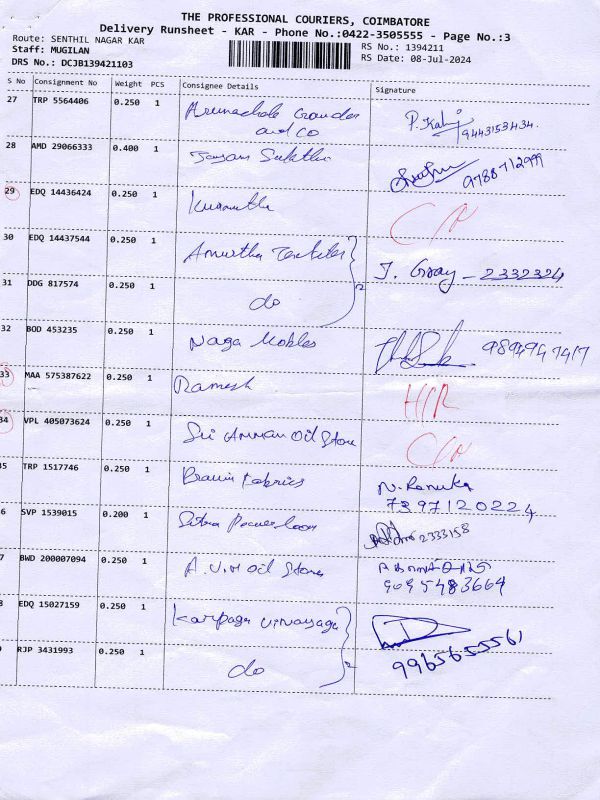 THE PROFESSIONAL COURIERS, COIMBATORE
Delivery Runsheet - KAR - Phone No.:0422-3505555 - Page No.:3
Route: SENTHIL NAGAR KAR
RS No.: 1394211
Staff: MUGILAN
RS Date: 08-Jul-2024
DRS No.: DCJB139421103
S No Consignment No Weight PCS Consignee Details Signature
27 TRP 5564406 0.250 1 Arunachala Gounder and Co P. 9443153434.
28 AMD 29066333 0.400 1 9788712999
29 EDQ 14436424 0.250 1 C/N
30 EDQ 14437544 0.250 1 Amirtha J. 2332324
31 DDG 817574 0.250 1 do 2
32 BOD 453235 0.250 1 Naga Mobles 9894947417
33 MAA 575387622 0.250 1 Ramesh H/R
34 VPL 405073624 0.250 1 Sri Amman Oil Store C/N
5 TRP 1517746 0.250 1 Fabrics N. Renuka 7397120224
6 SVP 1539015 0.200 1 2333158
7 BWD 200007094 0.250 1 A.V.M Oil Stores 9095483664
8 EDQ 15027159 0.250 1 Karpaga Vinayaga
9 RJP 3431993 0.250 1 do 2 9965655561